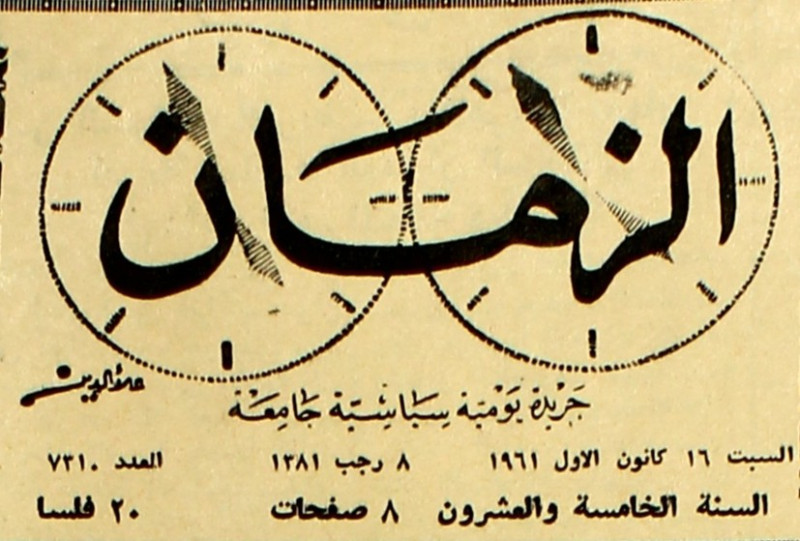 الزمان
علاءالدين
جَريدة يَوميَة سِيَاسِيّة جَامِعَة
السبت ١٦ كانون الاول ١٩٦١ ٨ رجب ١٣٨١ العدد ٧٣١٠
السنة الخامسة والعشرون ٨ صفحات ٢٠ فلسا